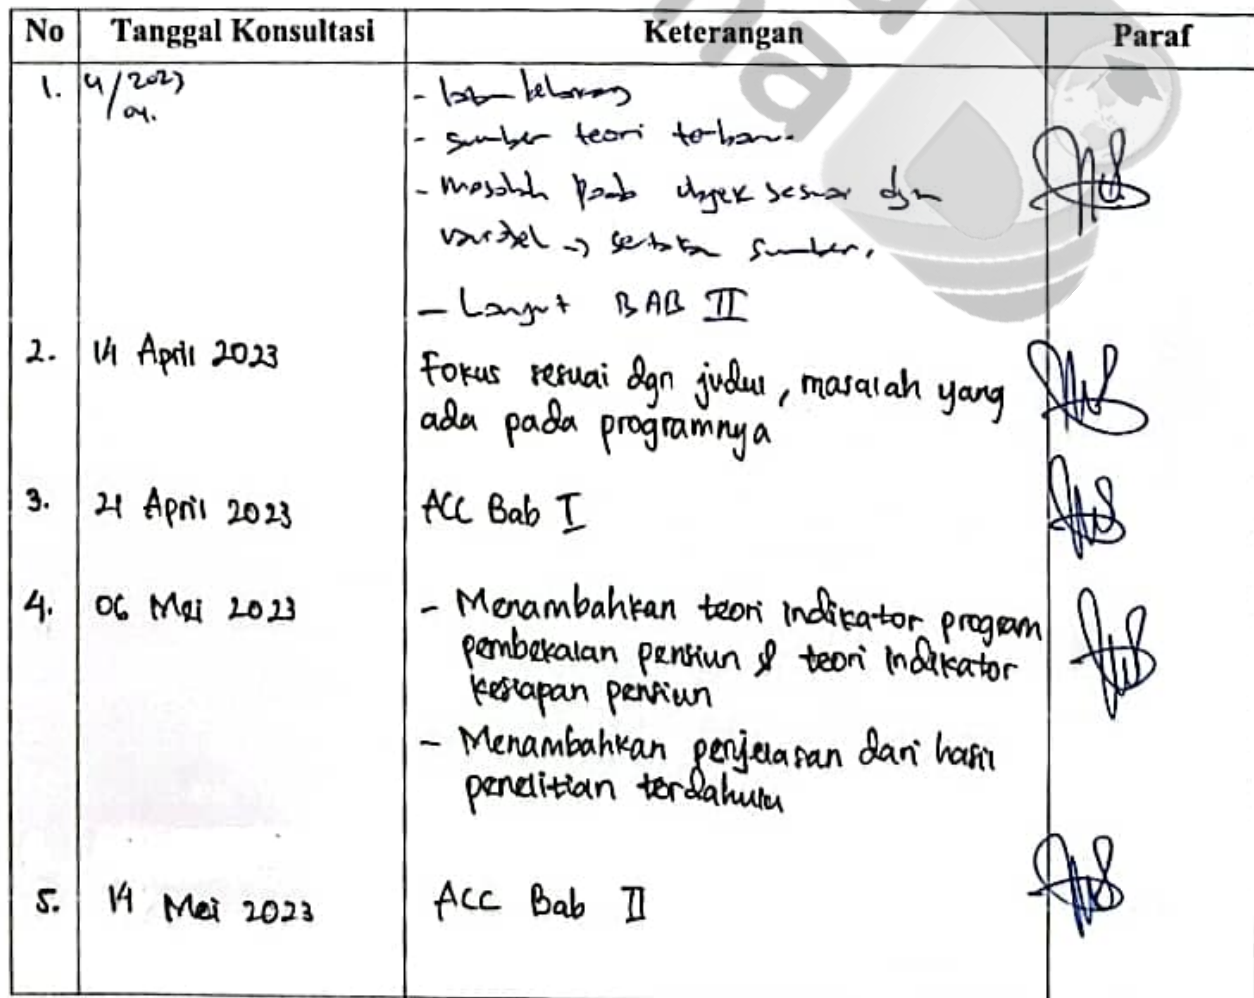 No Tanggal Konsultasi Keterangan Paraf
1. 4/2023 - latar belakang
04. - sumber teori terbaru.
- masalah pada objek sesuai dgn
variabel → sertakan sumber.
- Lanjut BAB II
2. 14 April 2023 Fokus sesuai dgn judul, masalah yang
ada pada programnya
3. 21 April 2023 ACC Bab I
4. 06 Mei 2023 - Menambahkan teori indikator program
pembekalan pensiun & teori indikator
kesiapan pensiun
- Menambahkan penjelasan dari hasil
penelitian terdahulu
5. 14 Mei 2023 ACC Bab II